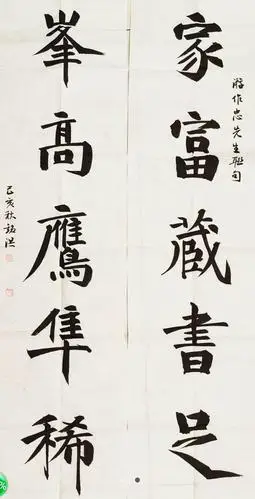 家富藏書足
游作忠先生聯句
峯高鷹隼稀
己亥秋